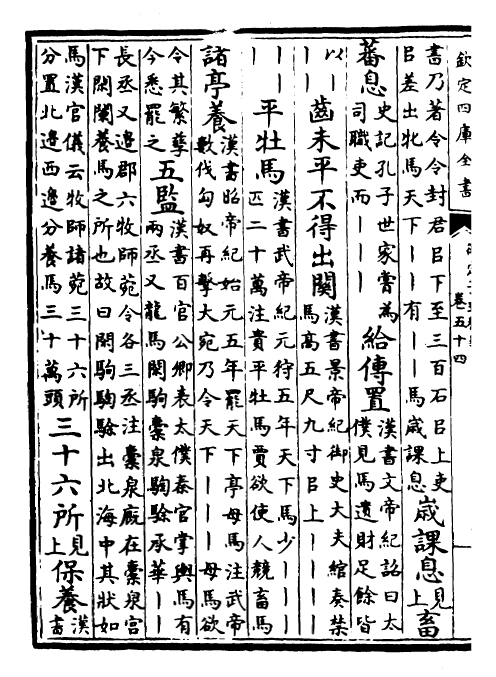 欽定四庫全書
卷五十四
書乃著令令封君㠯下至三百石㠯上吏
㠯差出牝馬天下丨丨有丨丨馬歲課息
歲課息
見
上
畜
蕃息
史記孔子世家嘗為
司職吏而丨丨丨丨
給傳置
漢書文帝紀詔曰太
僕見馬遺財足餘皆
以丨
丨丨
齒未平不得出關
漢書景帝紀御史大夫綰奏禁
馬高五尺九寸㠯上丨丨丨丨
丨丨
丨丨
平牡馬
漢書武帝紀元狩五年天下馬少丨丨丨
匹二十萬注貴平牡馬賈欲使人競畜馬
諸亭養
漢書昭帝紀始元五年罷天下亭母馬注武帝
數伐匈奴再擊大宛乃令天下丨丨丨母馬欲
令其繁孳
今悉罷之
五監
漢書百官公卿表太僕秦官掌輿馬有
兩丞又龍馬閑駒橐泉騊駼承華丨丨
長丞又邊郡六牧師菀令各三丞注橐泉廐在橐泉宮
下閑闌養馬之所也故曰閑駒騊駼出北海中其狀如
馬漢官儀云牧師諸菀三十六所
分置北邊西邊分養馬三十萬頭
三十六所
見
上
保養
漢
書